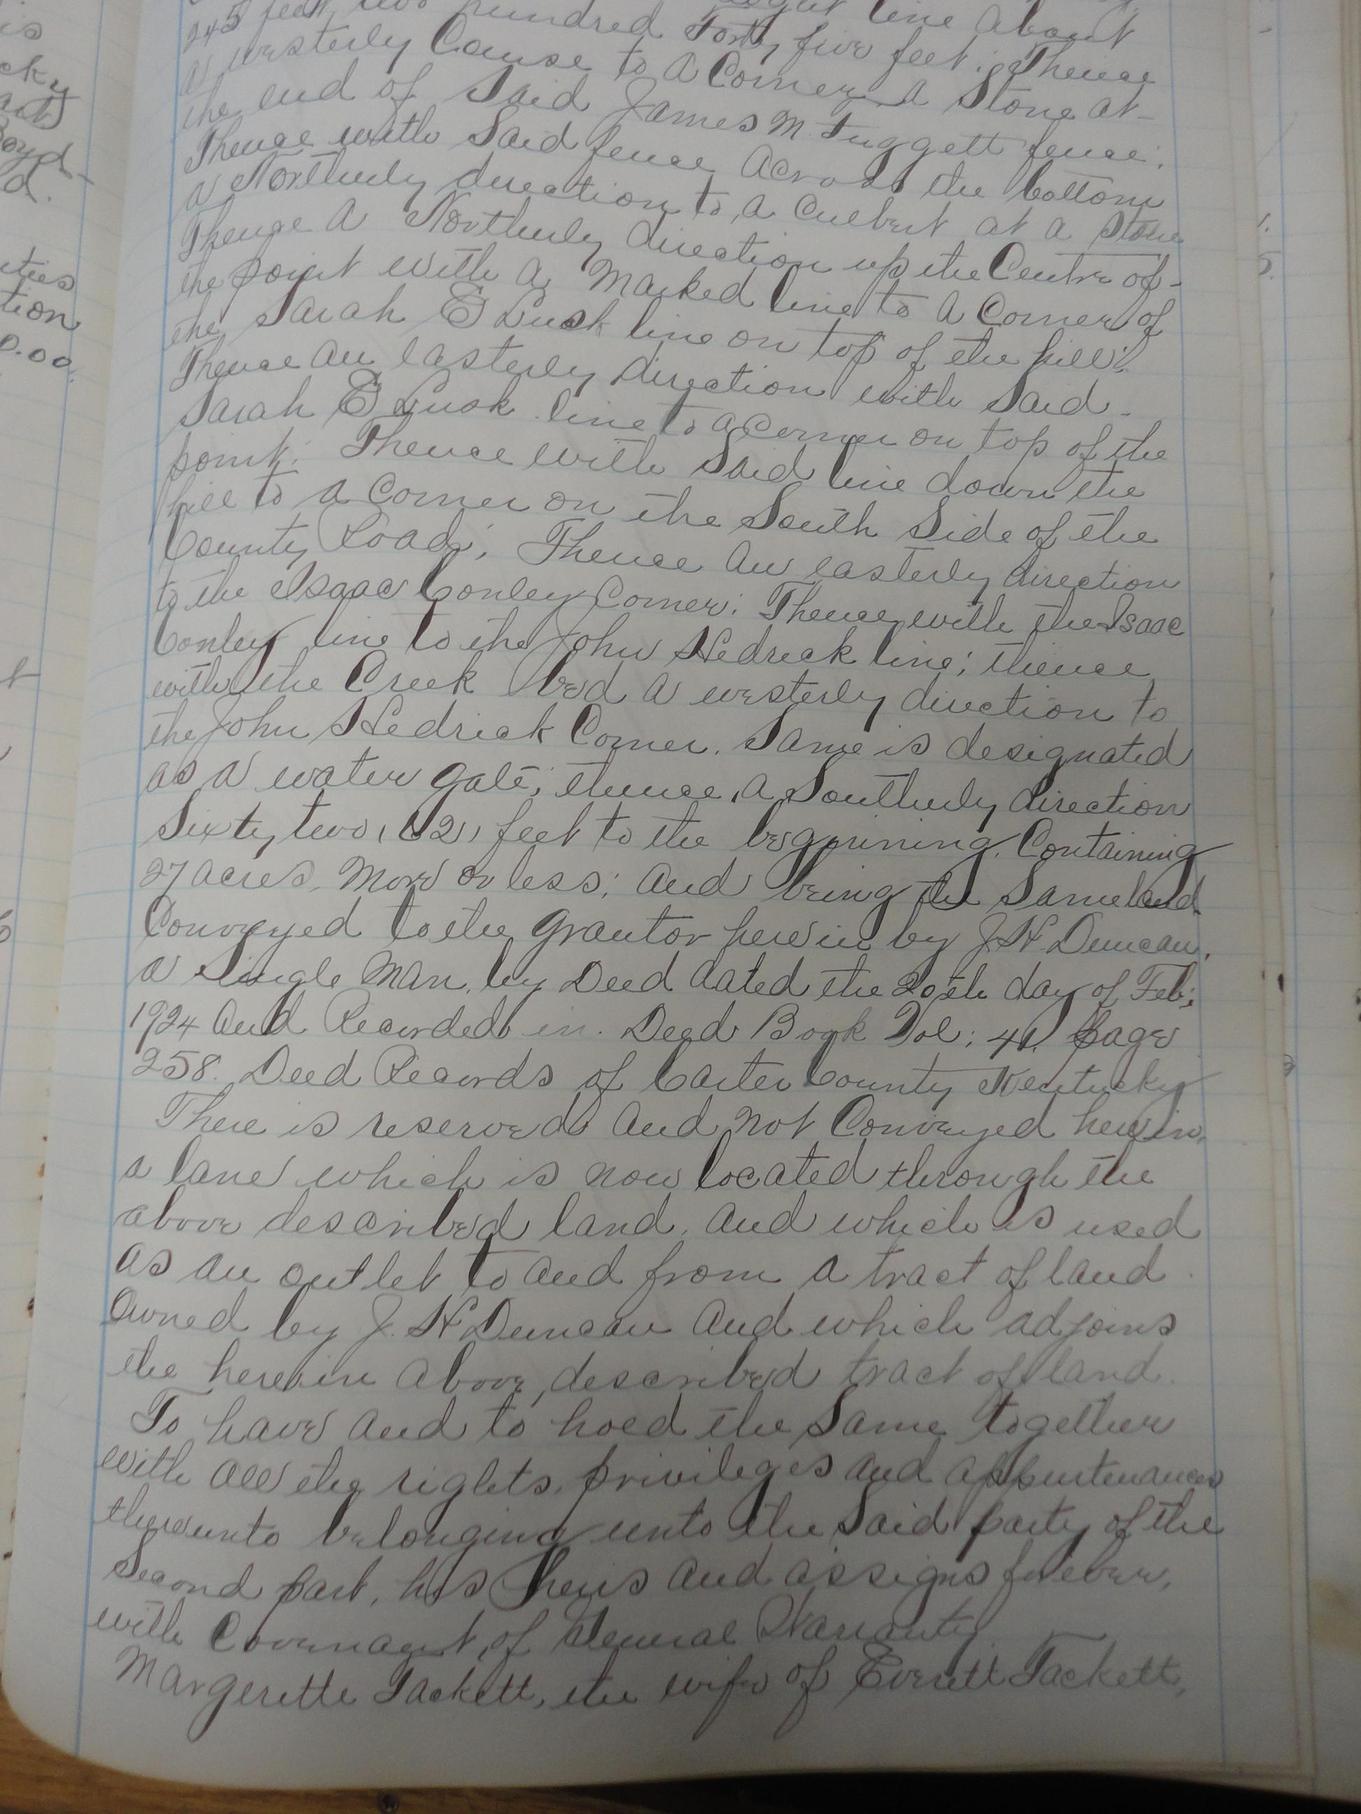 is
cky
Boyd
d.
ties
tion
0.00.
line about
245 feet, two hundred Forty five feet; Thence
a westerly Cause to A Corner A Stone at
the end of Said James M Tuggett fence;
Thence with Said fence across the bottom
a Northerly direction to a Culbert at a Stone
Thence A Northerly direction up the Centre of
the point with a Marked line to A Corner of
the Sarah E Lusk line on top of the hill;
Thence an easterly direction with Said
Sarah E Lusk line to a Corner on top of the
point. Thence with Said line down the
hill to a Corner on the South Side of the
County Road; Thence an easterly direction
to the Isaac Conley Corner; Thence with the Isaac
Conley line to the John Hedrick line; thence
with the Creek bed a westerly direction to
the John Hedrick Corner. Same is designated
as a water gate; thence, a Southerly direction
Sixty two (62) feet to the beginning. Containing
27 acres, More or less; and being the Same land
Conveyed to the grantor herein by J. H Duncan,
a Single Man, by Deed dated the 20th day of Feb;
1924 and Recorded in Deed Book Vol; 41, Page
258. Deed Records of Carter County Kentucky
There is reserved and not Conveyed herein,
a lane which is now located through the
above described land, and which is used
as an outlet to and from a tract of land
Owned by J. H Duncan and which adjoins
the herein above, described tract of land.
To have and to hold the Same together
with all the rights, privileges and appurtenances
thereunto belonging unto the Said party of the
Second part, his heirs and assigns forever,
with Covenant, of General Warranty
Margerette Tackett, the wife of Everett Tackett,